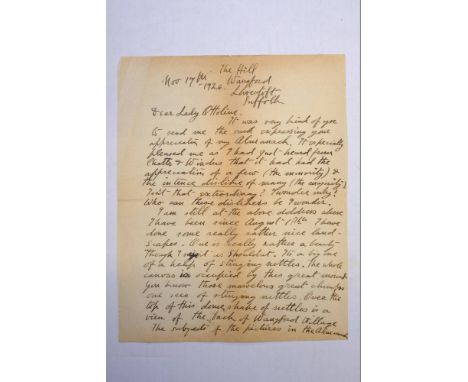 The Hill
Nov 17th 1926. Wangford
Lowestoft
Suffolk
Dear Lady Ottoline.
It was very kind of you
to send me the card expressing your
appreciation of my Almanack. It especially
pleased me as I had just heard from
Chatto & Windus that it had had the
appreciation of a few (the minority) &
the intense dislike of many (the majority)
Isn't that extraordinary? I wonder why?
Who can these dislikers be I wonder.
I am still at the above address where
I have been since August 17th I have
done some really rather nice land-
scapes. One is really rather a beauty
though I said is shouldnt. Its a big one
of a heap of stinging nettles. The whole
canvas is occupied by this great mound
you know those marvelous great clumps
one sees of stinging nettles Over the
top of this dome shape of nettles is a
view of the back of Wangford village
The subjects of the pictures in the Almanack